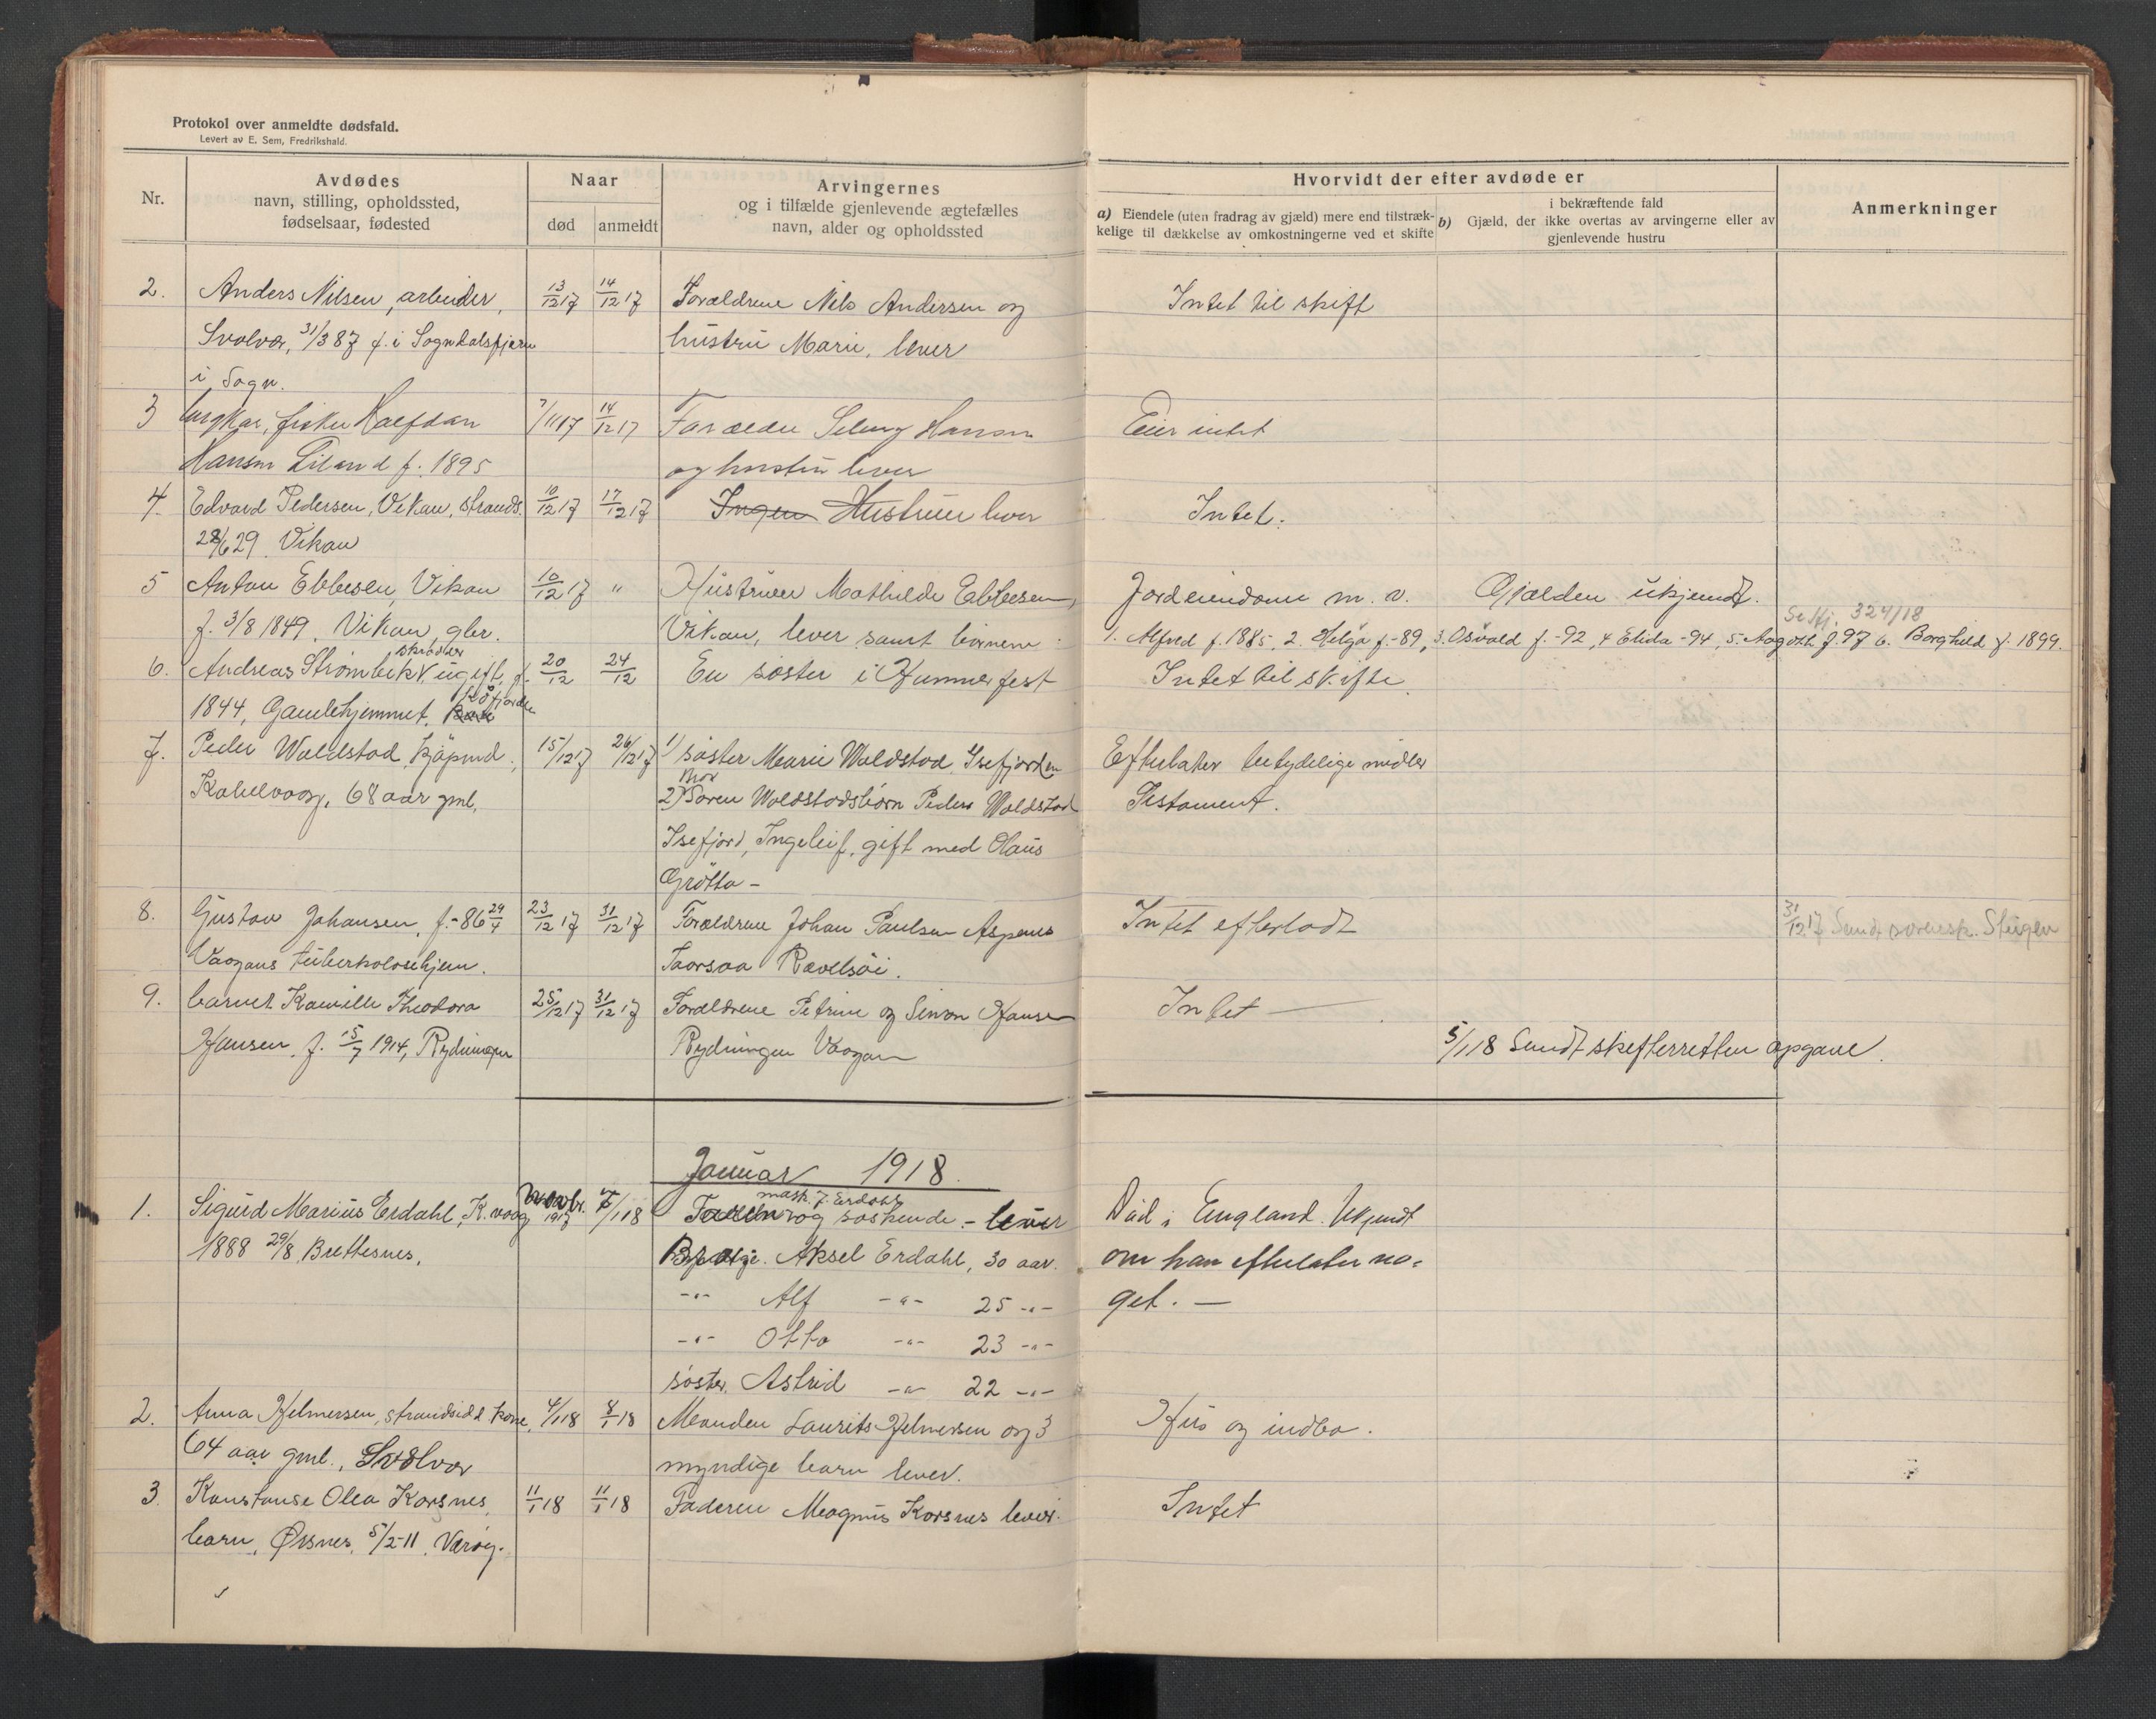 Protokol over anmeldte dødsfald.
Levert av E. Sem, Fredrikshald.
Nr.
Avdødes
navn, stilling, opholdssted,
fødselsaar, fødested
Naar
død anmeldt
Arvingernes
og i tilfælde gjenlevende ægtefælles
navn, alder og opholdssted
Hvorvidt der efter avdøde er
a) Eiendele (uten fradrag av gjæld) mere end tilstræk-
kelige til dækkelse av omkostningerne ved et skifte
i bekræftende fald
b) Gjæld, der ikke overtas av arvingerne eller av
gjenlevende hustru
Anmerkninger
2. Anders Nilsen, arbeider, 13/12 17 14/12 17 Forældrene Nils Andersen og Intet til skift
Svolvær, 31/3 87 f. i Sogndalsfjæren hustru Marie, lever
i Sogn.
3 ungkar, fisker Halfdan 7/11 17 14/12 17 Forældre Hansen Eier intet
Hansen Liland f. 1895 og hustru lever
4. Edvard Pedersen, Vikan, strands. 10/12 17 17/12 17 Ingen Hustruen lever Intet.
28/6 29 Vikan
5 Anton Ebbesen, Vikan 10/12 17 " Hustruen Mathilde Ebbesen, Jordeiendom m. v. Gjælden ukjendt.
f. 3/8 1849, Vikan, gbr. Vikan, lever samt børnene: 324/18
1. Alfred f. 1885, 2. Helga f. -89, 3. Osvald f. -92, 4 Elida -94, 5. Magoth f. 97 6. Borghild f. 1899.
skrædder
6. Andreas Strømbekk, ugift, f. 20/12 24/12 En søster i Hammerfest Intet til skifte
1844, Gamlehjemmet,
7. Peder Woldstad, kjøpmd., 15/12 17 26/12 17 1) søster Marie Woldstad, Isefjorden Efterlater betydelige midler
Kabelvaag, 68 aar gml. Bror
2) Søren Woldstads børn Peder Woldstad Testament.
Isefjord, Ingeleif, gift med Olaus
Grøtta -
8. Gustav Johansen, f. -86 24/4 23/12 17 31/12 17 Forældrene Johan Paulsen Aspenes Intet efterladt 31/12 17 Sendt sorensk. Steigen
Vaagans tuberkolosehjem. Taarsaa
9. barnet Kamille Theodora 25/12 17 31/12 17 Forældrene Petrine og Simon Hansen Intet —
Hansen f. 15/7 1914, Rydningen Rydningen Vaagan 5/1 18 Sendt skifteretten opgave.
Januar 1918.
mask. J. Erdahl
1. Sigurd Marius Erdahl, K.vaag 1917 /1 18 og søskende - lever Død i England. Ukjendt
1888 29/8, Brettesnes, Aksel Erdahl, 30 aar. om han efterlater no-
-"- Alf -"- 25 -"- get. —
-"- Otto -"- 23 -"-
søster. Astrid -"- 22 -"-
2. Anna Hjelmersen, strandsid. kone, 4/1 18 8/1 18 Manden Laurits Hjelmersen og 3 Hus og indbo.
64 aar gml., Svolvær myndige barn lever.
3. Konstanse Olea Korsnes, 11/1 18 11/1 18 Faderen Magnus Korsnes lever. Intet
barn, Ørsnes, 5/2-11, Værøy.